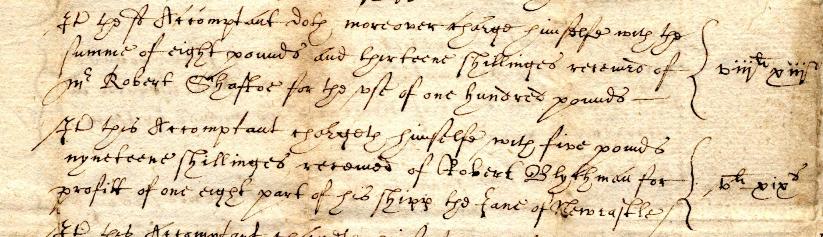 Itm the sd Accomptant doth moreover charge himselfe with the
summe of eight pounds and thirteene shillinges received of
Mr Robert Shaftoe for the vse of one hundred pounds — viijli xiijs
Itm this Accomptant chargeth himselfe with five pounds
nyneteene shillinges received of Robert Blythman for
profitt of one eight part of his shipp the Jane of Newcastle / vli xixs
Itm this Accomptant